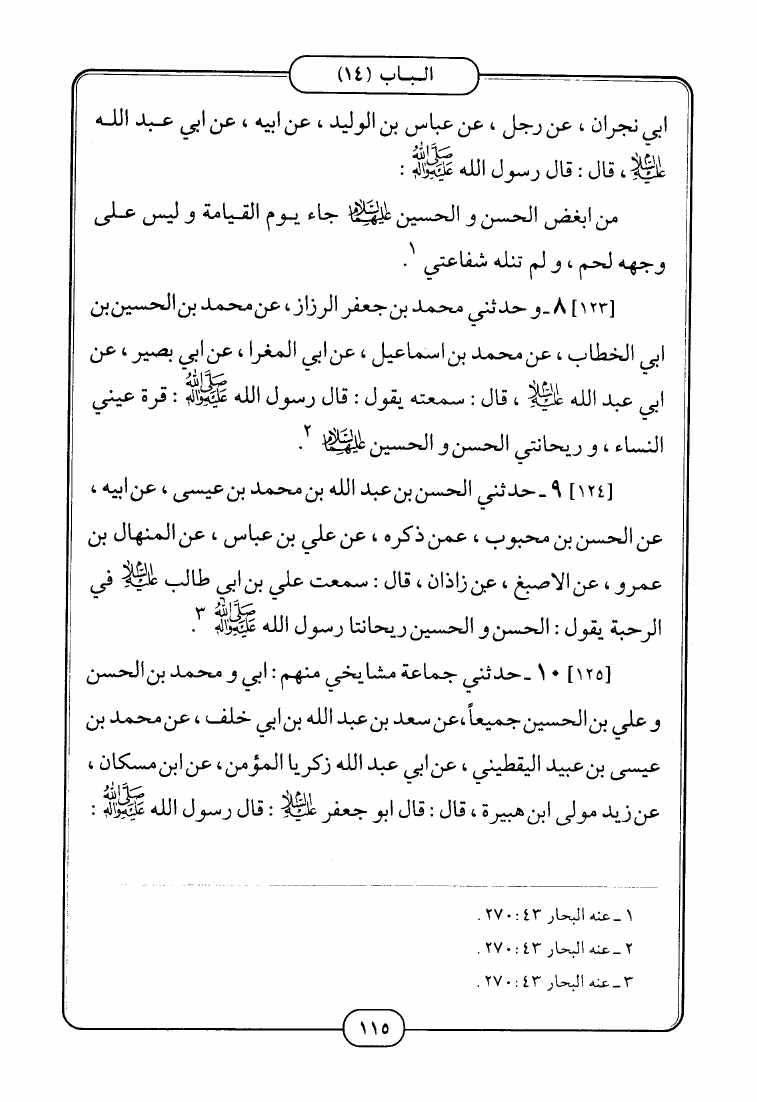 الباب (١٤)
ابي نجران ، عن رجل ، عن عباس بن الوليد ، عن ابيه ، عن ابي عبد الله
عليه السلام ، قال : قال رسول الله صلى الله عليه وآله :
من ابغض الحسن و الحسين عليهما السلام جاء يوم القيامة و ليس على
وجهه لحم ، و لم تنله شفاعتي ١.
[١٢٣] ٨ ـ و حدثني محمد بن جعفر الرزاز ، عن محمد بن الحسين بن
ابي الخطاب ، عن محمد بن اسماعيل ، عن ابي المغرا ، عن ابي بصير ، عن
ابي عبد الله عليه السلام ، قال : سمعته يقول : قال رسول الله صلى الله عليه وآله : قرة عيني
النساء ، و ريحانتي الحسن و الحسين عليهما السلام ٢.
[١٢٤] ٩ ـ حدثني الحسن بن عبد الله بن محمد بن عيسى ، عن ابيه ،
عن الحسن بن محبوب ، عمن ذكره ، عن علي بن عباس ، عن المنهال بن
عمرو ، عن الاصبغ ، عن زاذان ، قال : سمعت علي بن ابي طالب عليه السلام في
الرحبة يقول : الحسن و الحسين ريحانتا رسول الله صلى الله عليه وآله ٣.
[١٢٥] ١٠ ـ حدثني جماعة مشايخي منهم : ابي و محمد بن الحسن
و علي بن الحسين جميعاً ، عن سعد بن عبد الله بن ابي خلف ، عن محمد بن
عيسى بن عبيد اليقطيني ، عن ابي عبد الله زكريا المؤمن ، عن ابن مسكان ،
عن زيد مولى ابن هبيرة ، قال : قال ابو جعفر عليه السلام : قال رسول الله صلى الله عليه وآله :
١ ـ عنه البحار ٤٣ : ٢٧٠ .
٢ ـ عنه البحار ٤٣ : ٢٧٠ .
٣ ـ عنه البحار ٤٣ : ٢٧٠ .
١١٥